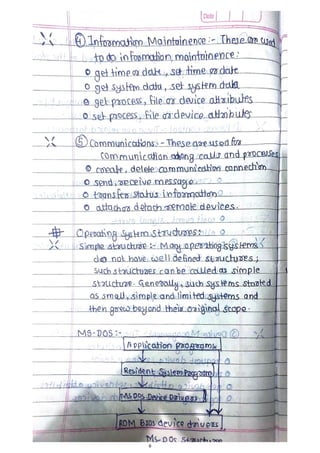 Date
④ Information Maintainence :- These are used
to do information maintainence:
o get time or date, set time or date
o get system data, set system data
o get process, file or device attributes
o set process, file or device attributes
⑤ Communications :- These are used for
communication along calls and processes
o create, delete communication connection
o send, receive message
o transfer status information
o attach or detach remote devices.
# Operating System Structures:
Simple structure :- Many operating systems
do not have well defined structures;
such structures can be called as simple
structure. Generally, such systems started
as small, simple and limited systems and
then grew beyond their original scope.
MS-DOS :-
Application programs
Resident System Program
MS DOS Device Drivers
ROM BIOS device drivers
MS-DOS Structure